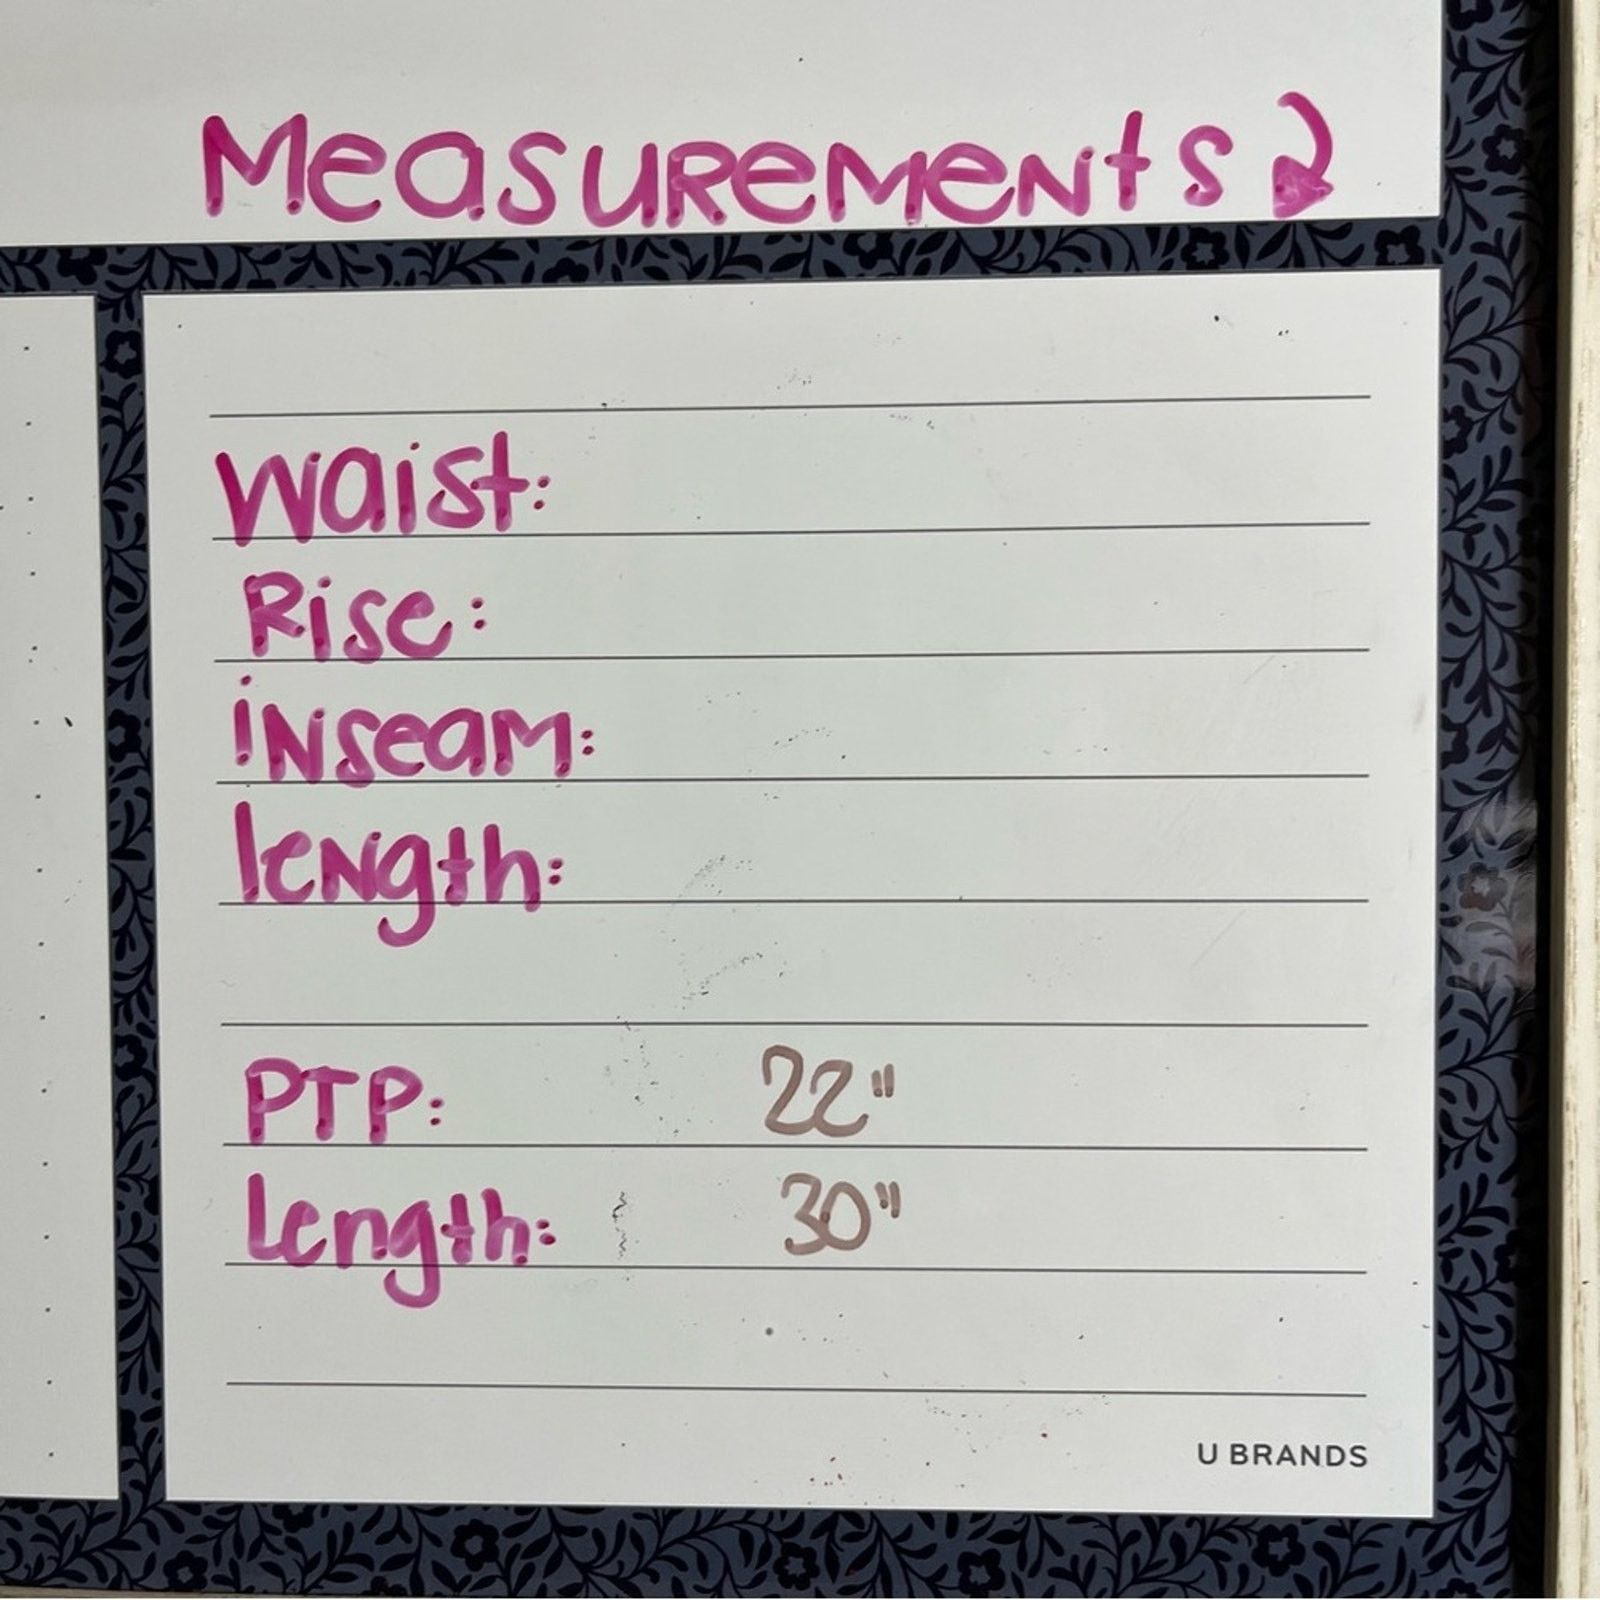 Measurements
Waist:
Rise:
inseam:
length:
PTP: 22"
Length: 30"
U BRANDS